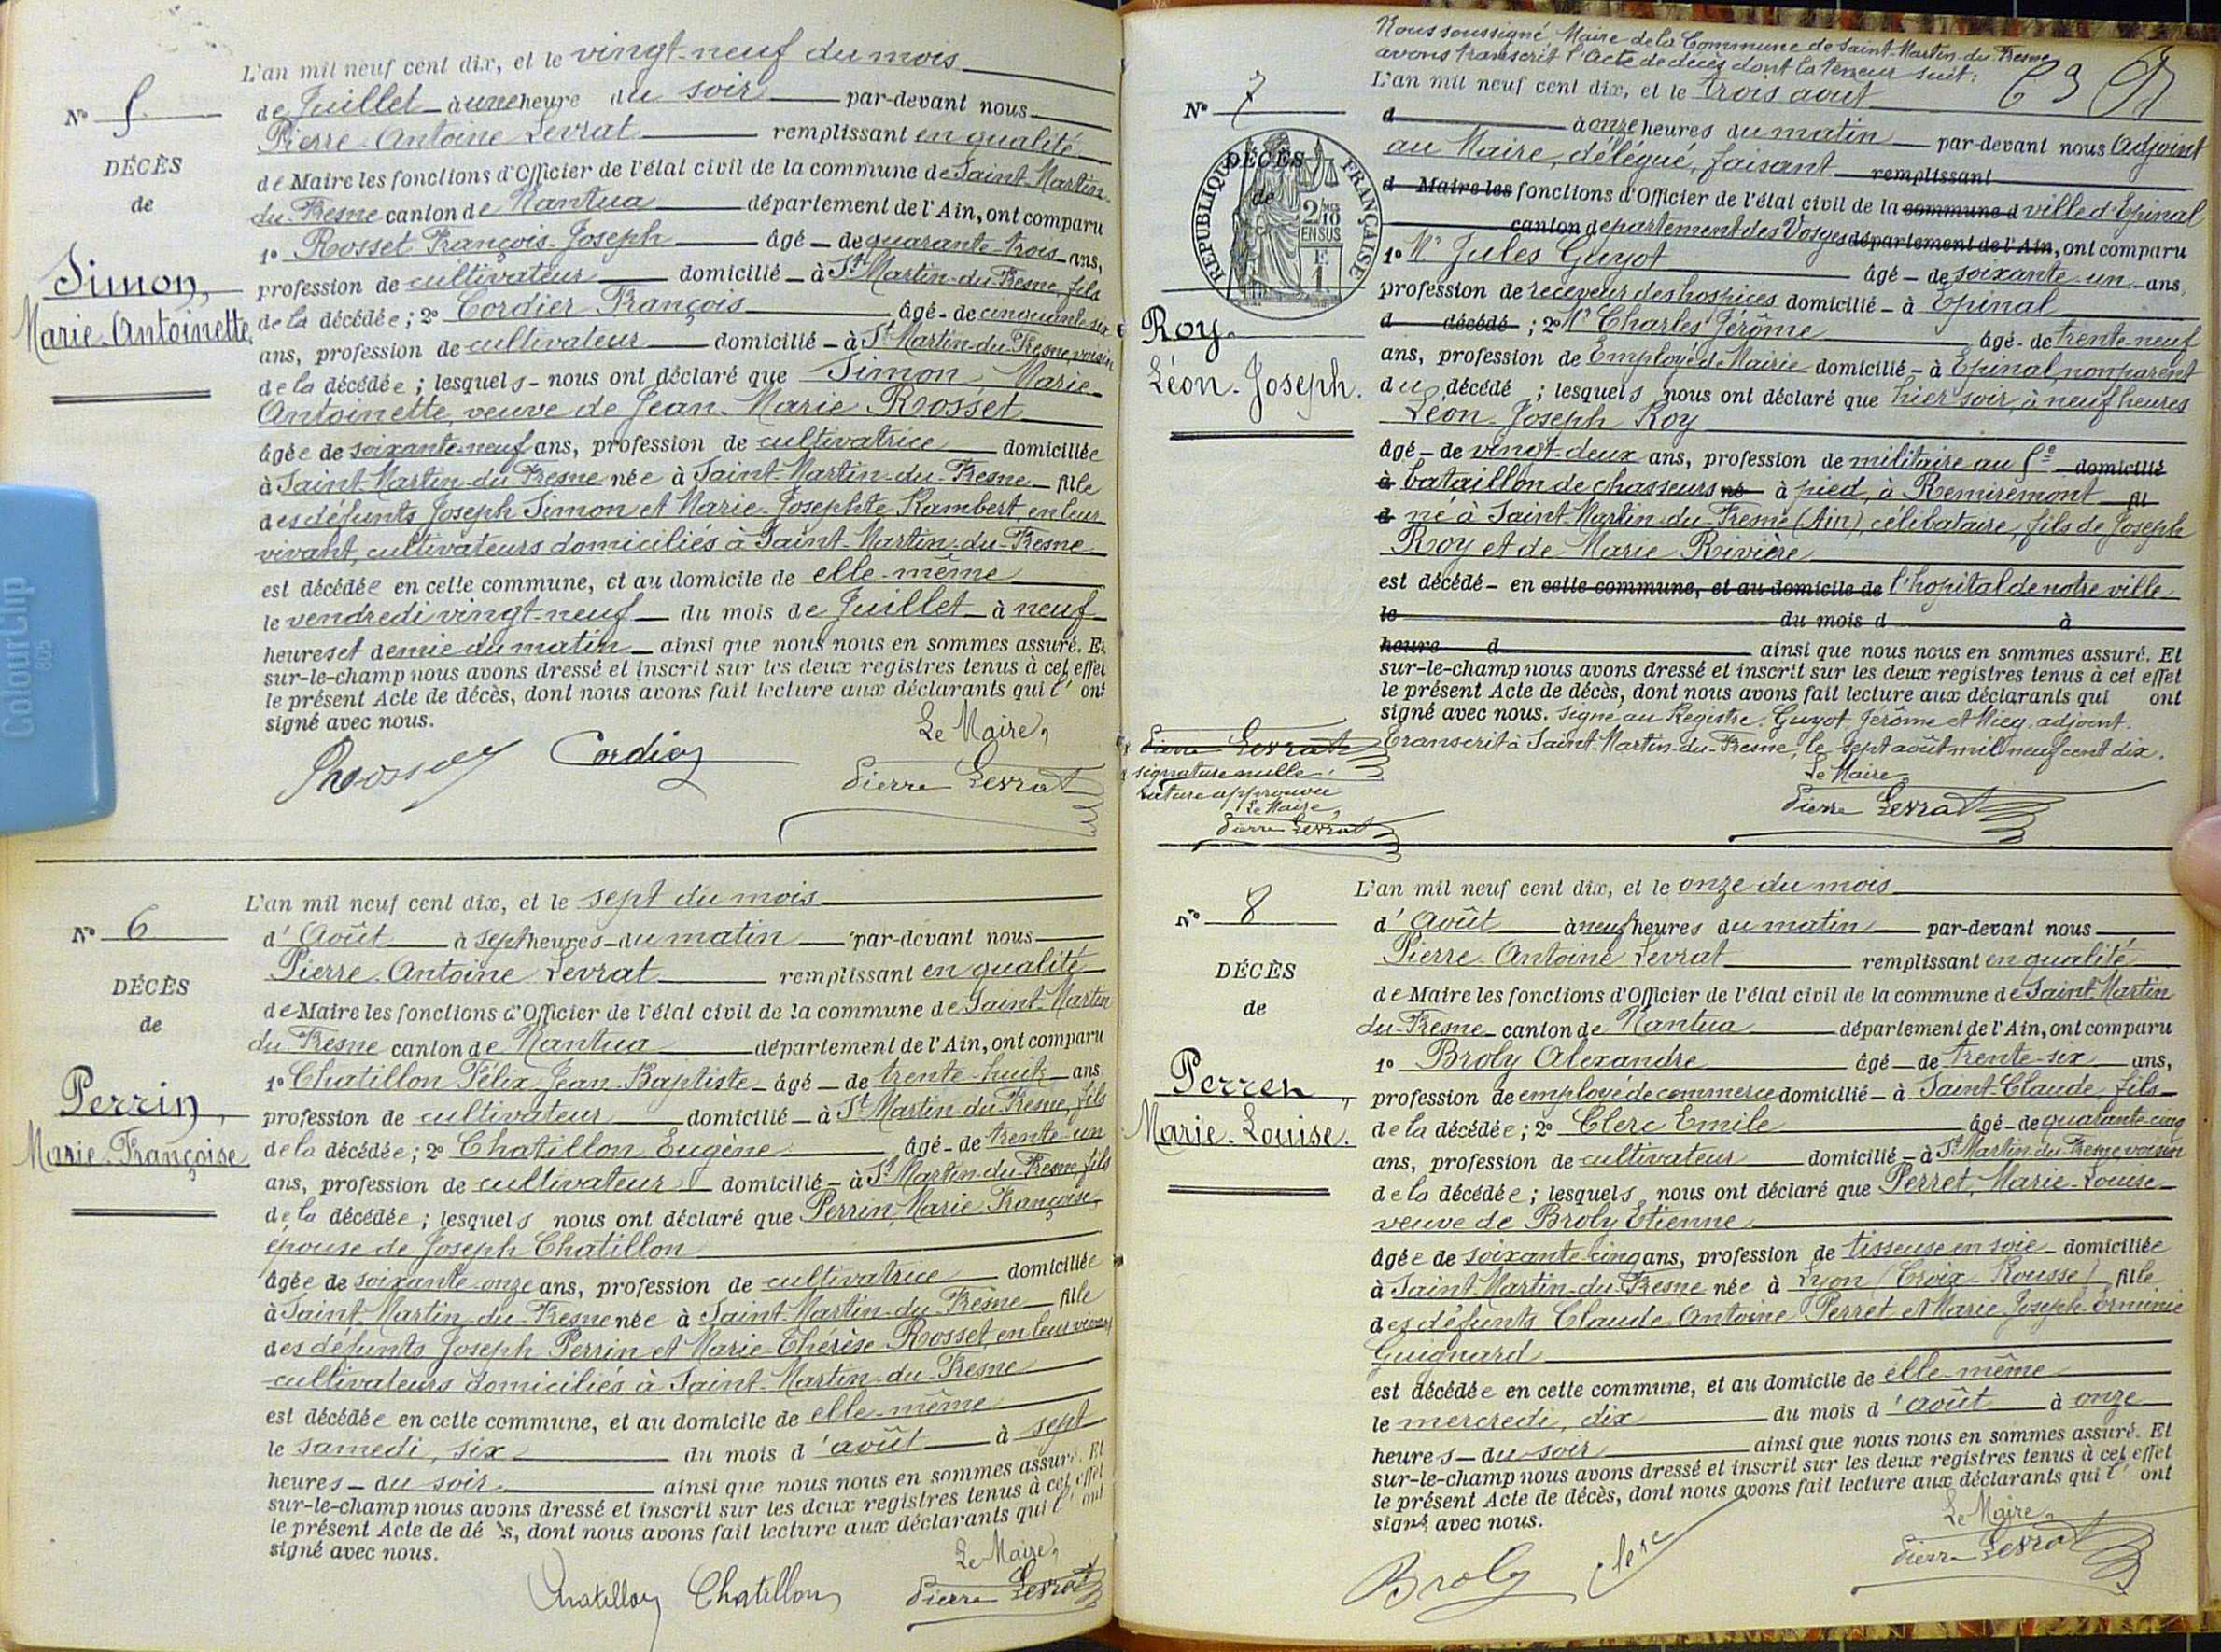 L'an mil neuf cent dix, et le vingt-neuf du mois
N° 5
de Juillet à une heure du soir par-devant nous
Pierre-Antoine Levrat remplissant en qualité
DÉCÈS
de Maire les fonctions d'Officier de l'état civil de la commune de Saint-Martin-
de
du-Fresne canton de Nantua département de l'Ain, ont comparu
1° Rosset François-Joseph âgé de quarante-trois ans,
Simon,
profession de cultivateur domicilié à St Martin-du-Fresne, fils
Marie-Antoinette
de la décédée ; 2° Cordier François âgé de cinquante-six
ans, profession de cultivateur domicilié à St Martin-du-Fresne, voisin
de la décédée ; lesquels nous ont déclaré que Simon, Marie-
Antoinette, veuve de Jean-Marie Rosset
âgée de soixante-neuf ans, profession de cultivatrice domiciliée
à Saint-Martin-du-Fresne née à Saint-Martin-du-Fresne fille
des défunts Joseph Simon et Marie-Josephte Rambert, en leur
vivant, cultivateurs domiciliés à Saint-Martin-du-Fresne
est décédée en cette commune, et au domicile de elle-même
le vendredi vingt-neuf du mois de Juillet à neuf
heures et demie du matin ainsi que nous nous en sommes assuré. Et
sur-le-champ nous avons dressé et inscrit sur les deux registres tenus à cet effet
le présent Acte de décès, dont nous avons fait lecture aux déclarants qui l' ont
signé avec nous.
Le Maire,
Rosset Cordier Pierre Levrat
L'an mil neuf cent dix, et le sept du mois
N° 6
d'Août à sept heures du matin par-devant nous
Pierre-Antoine Levrat remplissant en qualité
DÉCÈS
de Maire les fonctions d'Officier de l'état civil de la commune de Saint-Martin
de
du Fresne canton de Nantua département de l'Ain, ont comparu
1° Chatillon Félix Jean-Baptiste âgé de trente-huit ans
Perrin,
profession de cultivateur domicilié à St Martin-du-Fresne, fils
Marie-Françoise
de la décédée ; 2° Chatillon Eugène âgé de trente-un
ans, profession de cultivateur domicilié à St Martin-du-Fresne fils
de la décédée ; lesquels nous ont déclaré que Perrin, Marie-Françoise,
épouse de Joseph Chatillon
âgée de soixante-onze ans, profession de cultivatrice domiciliée
à Saint-Martin-du-Fresne née à Saint-Martin-du-Fresne fille
des défunts Joseph Perrin et Marie-Thérèse Rosset, en leur vivant
cultivateurs domiciliés à Saint-Martin-du-Fresne
est décédée en cette commune, et au domicile de elle-même
le samedi, six du mois d'août à sept
heures du soir ainsi que nous nous en sommes assuré. Et
sur-le-champ nous avons dressé et inscrit sur les deux registres tenus à cet effet
le présent Acte de décès, dont nous avons fait lecture aux déclarants qui l' ont
signé avec nous.
Le Maire,
Chatillon Chatillon Pierre Levrat
Nous soussigné, Maire de la Commune de Saint-Martin-du-Fresne
avons transcrit l'Acte de décès dont la teneur suit :
L'an mil neuf cent dix, et le trois août
63
N° 7
d à onze heures du matin par-devant nous Adjoint
au Maire, délégué, faisant remplissant
DÉCÈS
de
RÉPUBLIQUE FRANÇAISE
2/10 EN SUS
E
1
d Maire les fonctions d'Officier de l'état civil de la commune d ville d'Epinal
canton departement des Vosges département de l'Ain, ont comparu
1° Mr Jules Guyot âgé de soixante-un ans,
profession de receveur des hospices domicilié à Epinal
Roy
d décédé ; 2° Mr Charles Jérôme âgé de trente-neuf
Léon-Joseph.
ans, profession de Employé de Mairie domicilié à Epinal, non parent
du décédé ; lesquels nous ont déclaré que hier soir, à neuf heures
Léon-Joseph Roy
âgé de vingt-deux ans, profession de militaire au 5e domicilié
à bataillon de chasseurs né à pied, à Remiremont fil
d né à Saint-Martin-du-Fresne (Ain), célibataire, fils de Joseph
Roy et de Marie Rivière
est décédé en cette commune, et au domicile de l'hopital de notre ville
le du mois d à
heure d ainsi que nous nous en sommes assuré. Et
sur-le-champ nous avons dressé et inscrit sur les deux registres tenus à cet effet
le présent Acte de décès, dont nous avons fait lecture aux déclarants qui ont
signé avec nous. Signé au Registre. Guyot, Jérôme et Mieg, adjoint.
Transcrit à Saint-Martin-du-Fresne, le sept août mil neuf cent dix.
Le Maire,
Pierre Levrat
Pierre Levrat
signature nulle
rature approuvée
Le Maire,
Pierre Levrat
L'an mil neuf cent dix, et le onze du mois
N° 8
d'Août à neuf heures du matin par-devant nous
Pierre-Antoine Levrat remplissant en qualité
DÉCÈS
de Maire les fonctions d'Officier de l'état civil de la commune de Saint-Martin
de
du-Fresne canton de Nantua département de l'Ain, ont comparu
1° Broly Alexandre âgé de trente-six ans,
Perret,
profession de employé de commerce domicilié à Saint-Claude, fils
Marie-Louise.
de la décédée ; 2° Clerc Emile âgé de quarante-cinq
ans, profession de cultivateur domicilié à St Martin-du-Fresne voisin
de la décédée ; lesquels nous ont déclaré que Perret, Marie-Louise
veuve de Broly Etienne
âgée de soixante-cinq ans, profession de tisseuse en soie domiciliée
à Saint-Martin-du-Fresne née à Lyon (Croix-Rousse) fille
des défunts Claude-Antoine Perret et Marie Joseph Erminie
Guignard
est décédée en cette commune, et au domicile de elle-même
le mercredi, dix du mois d'août à onze
heures du soir ainsi que nous nous en sommes assuré. Et
sur-le-champ nous avons dressé et inscrit sur les deux registres tenus à cet effet
le présent Acte de décès, dont nous avons fait lecture aux déclarants qui l' ont
signé avec nous.
Le Maire,
Broly Clerc Pierre Levrat
ColourClip
805